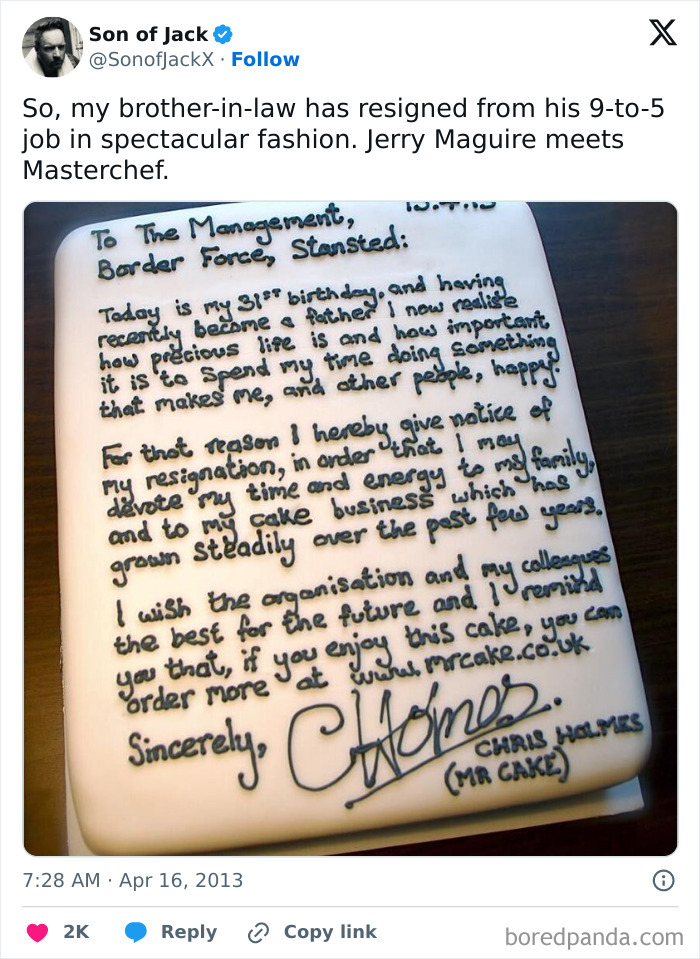 Son of Jack
@SonofJackX · Follow
So, my brother-in-law has resigned from his 9-to-5
job in spectacular fashion. Jerry Maguire meets
Masterchef.
To The Management,
Border Force, Stansted:
Today is my 31st birthday, and having
recently become a father I now realise
how precious life is and how important
it is to spend my time doing something
that makes me, and other people, happy.
For that reason I hereby give notice of
my resignation, in order that I may
devote my time and energy to my family,
and to my cake business which has
grown steadily over the past few years.
I wish the organisation and my colleagues
the best for the future and I remind
you that, if you enjoy this cake, you can
order more at www.mrcake.co.uk
Sincerely,
CHolmes.
CHRIS HOLMES
(MR CAKE)
7:28 AM · Apr 16, 2013
2K Reply Copy link
boredpanda.com